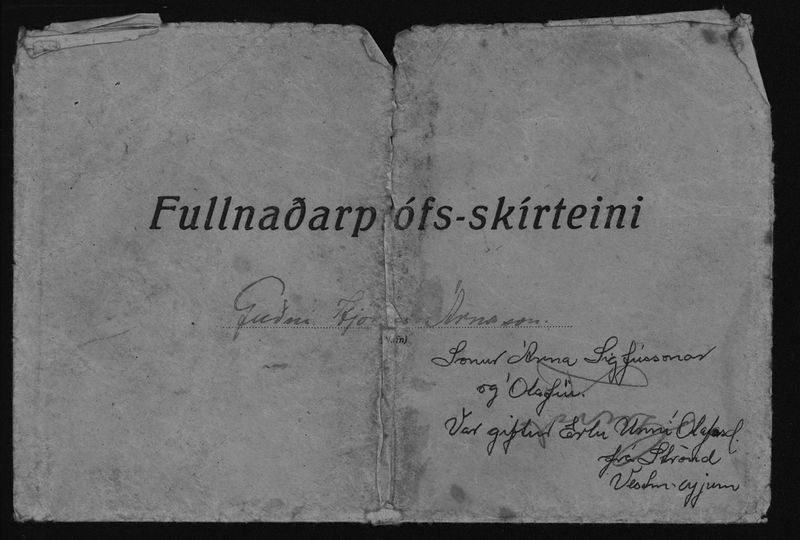 Fullnaðarprófs-skírteini
Guðni Hjö Árnason.
(Nafn)
Sonur Árna Sigfússonar
og Ólafíu.
Var giftur Erlu Unni Ólafsd.
frá Strönd
Vestm.eyjum